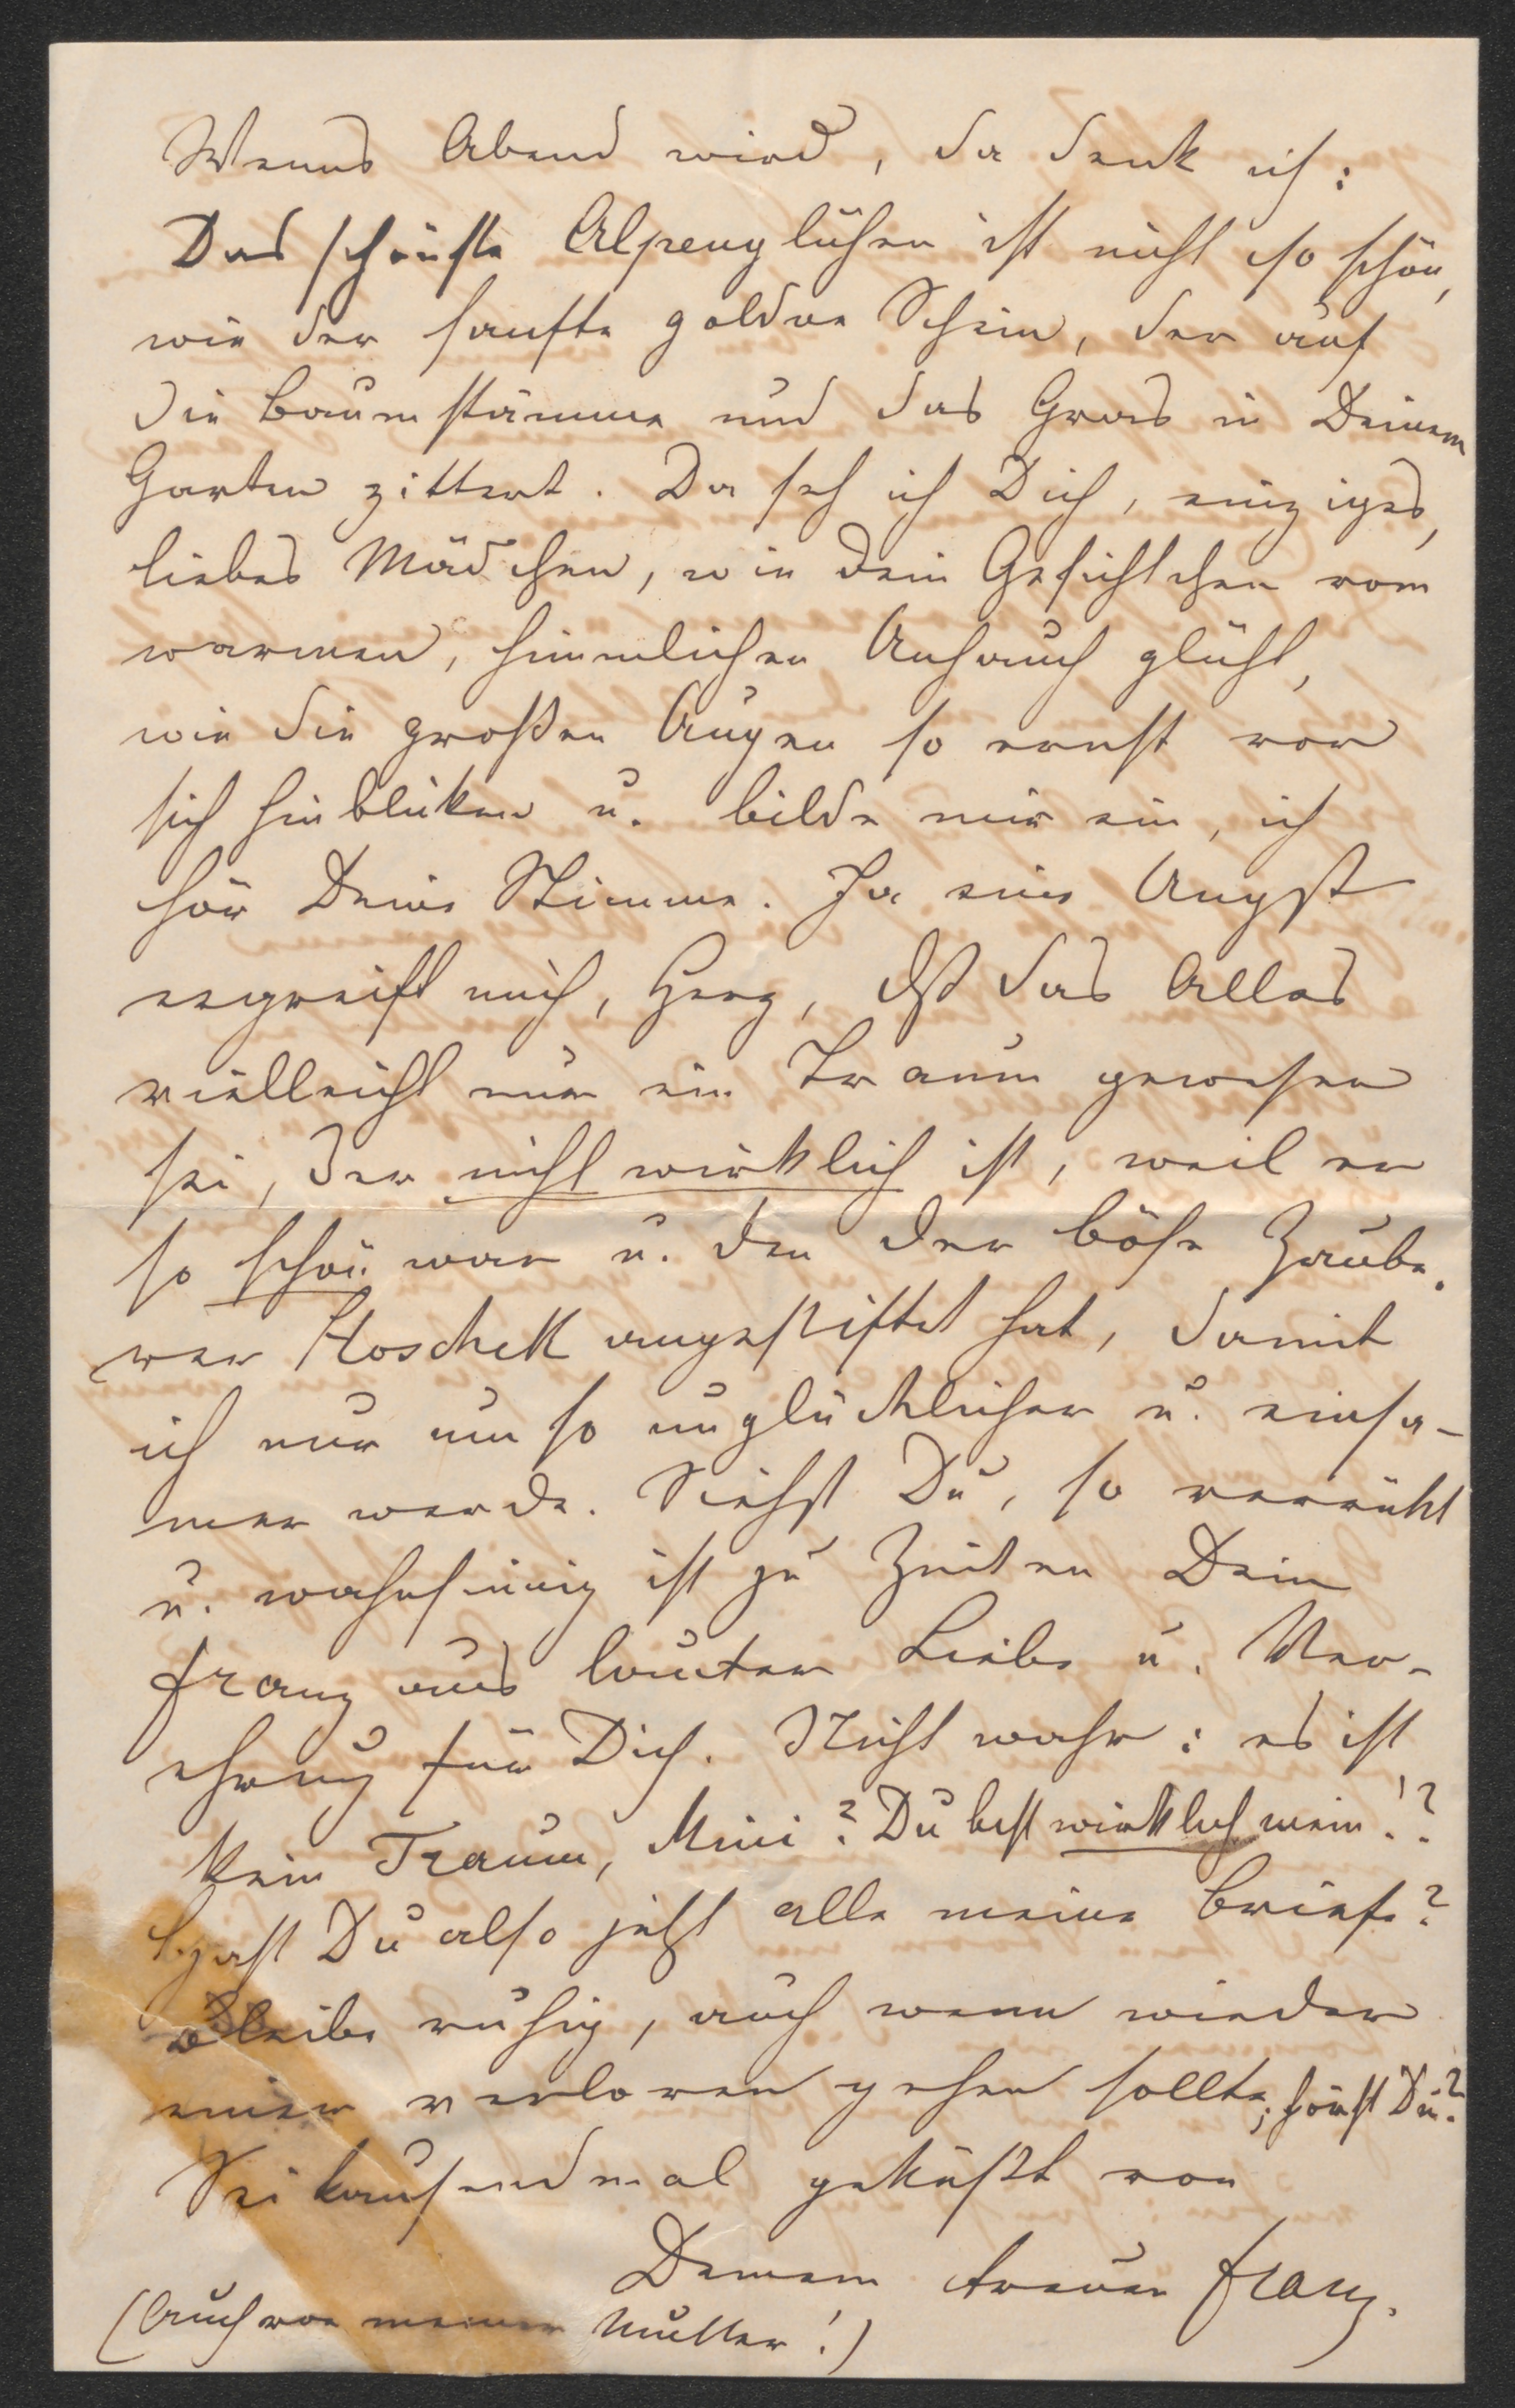 Wenns Abend wird, da denk ich:
Das schönste Alpenglühen ist nicht so schön,
wie der sanfte goldne Schein, der auf
die Baumstämme und das Gras in Deinem
Garten zittert. Da seh ich Dich, einziges,
liebes Mädchen, wie Dein Gesichtchen vom
warmen, himmlischen Anhauch glüht,
wie die großen Augen so ernst vor
sich hinblicken u. bilde mir ein, ich
hör Deine Stimme. Ja eine Angst
ergreift mich, Herz, dß das Alles
vielleicht nur ein Traum gewesen
sei, der nicht wirklich ist, weil er
so schön war u. den der böse Zaube-
rer Hoschek angestiftet hat, damit
ich nur um so unglücklicher u. einsa-
mer werde. Siehst Du, so verrückt
u. wahnsinnig ist zu Zeiten Dein
Franz aus lauter Liebe u. Ver-
ehrung für Dich. Nicht wahr: es ist
kein Traum, Mini? Du bist wirklich mein!?
Hast Du also jetzt alle meine Briefe?
Bleibe ruhig, auch wenn wieder
einer verloren gehen sollte, hörst Du?
Sei tausendmal geküßt von
Deinem treuen Franz.
(Auch von meiner Mutter!)